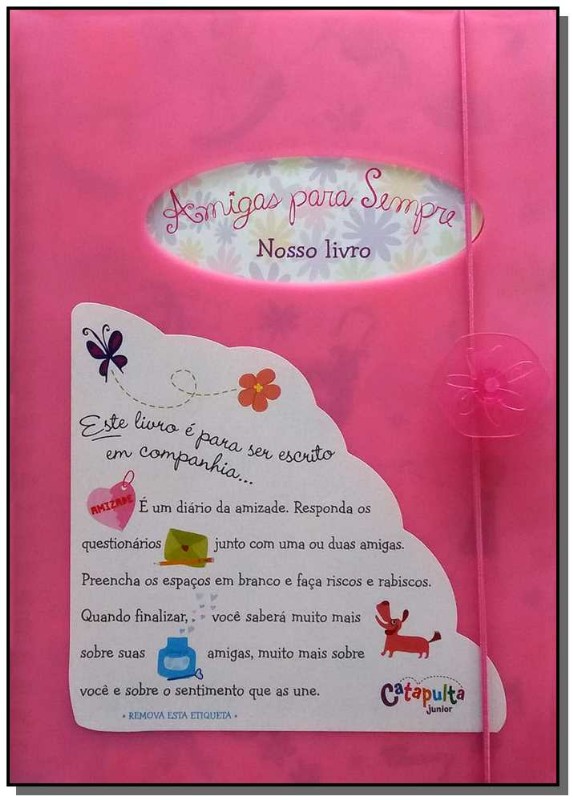 Amigas para Sempre
Nosso livro
Este livro é para ser escrito
em companhia...
AMIZADE
É um diário da amizade. Responda os
questionários junto com uma ou duas amigas.
Preencha os espaços em branco e faça riscos e rabiscos.
Quando finalizar, você saberá muito mais
sobre suas amigas, muito mais sobre
você e sobre o sentimento que as une.
• REMOVA ESTA ETIQUETA •
Catapulta
junior